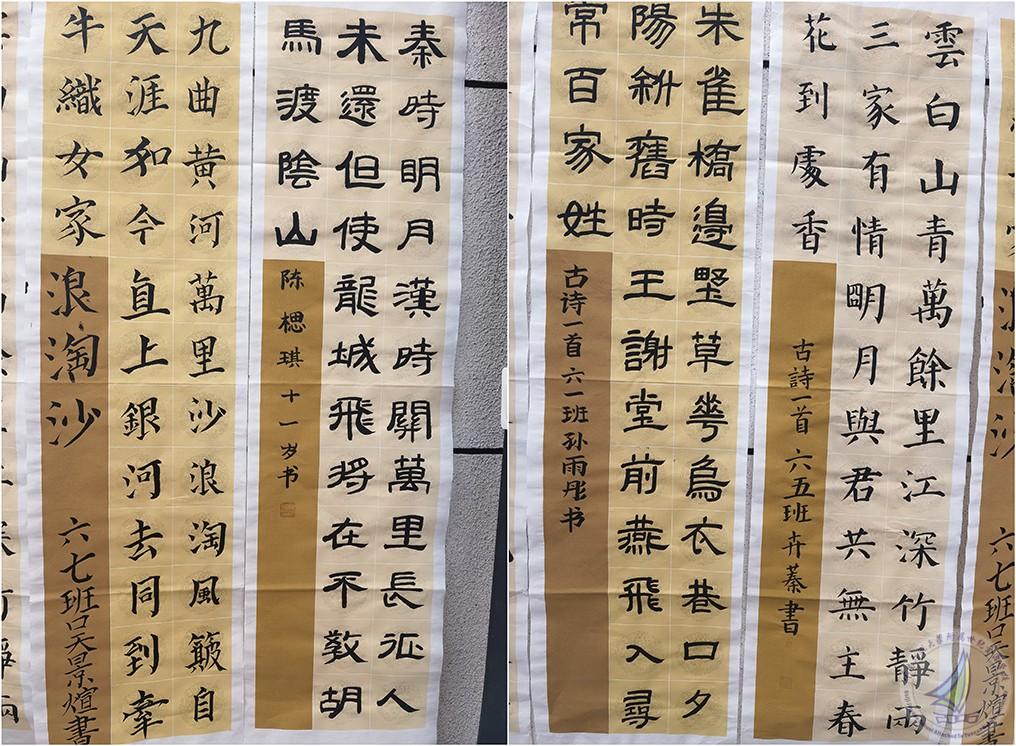 秦時明月漢時關萬里長征人
未還但使龍城飛將在不教胡
馬渡陰山
陈楒琪十一岁书
九曲黄河萬里沙浪淘風簸自
天涯如今直上銀河去同到牽
牛織女家
浪淘沙
六七班吴景煊書
雲白山青萬餘里江深竹靜兩
三家有情明月與君共無主春
花到處香
古詩一首 六五班 卉蓁書
朱雀橋邊墅草華烏衣巷口夕
陽斜舊時王謝堂前燕飛入尋
常百家姓
古诗一首 六一班孙雨彤书
浪淘沙
六七班吴景煊書